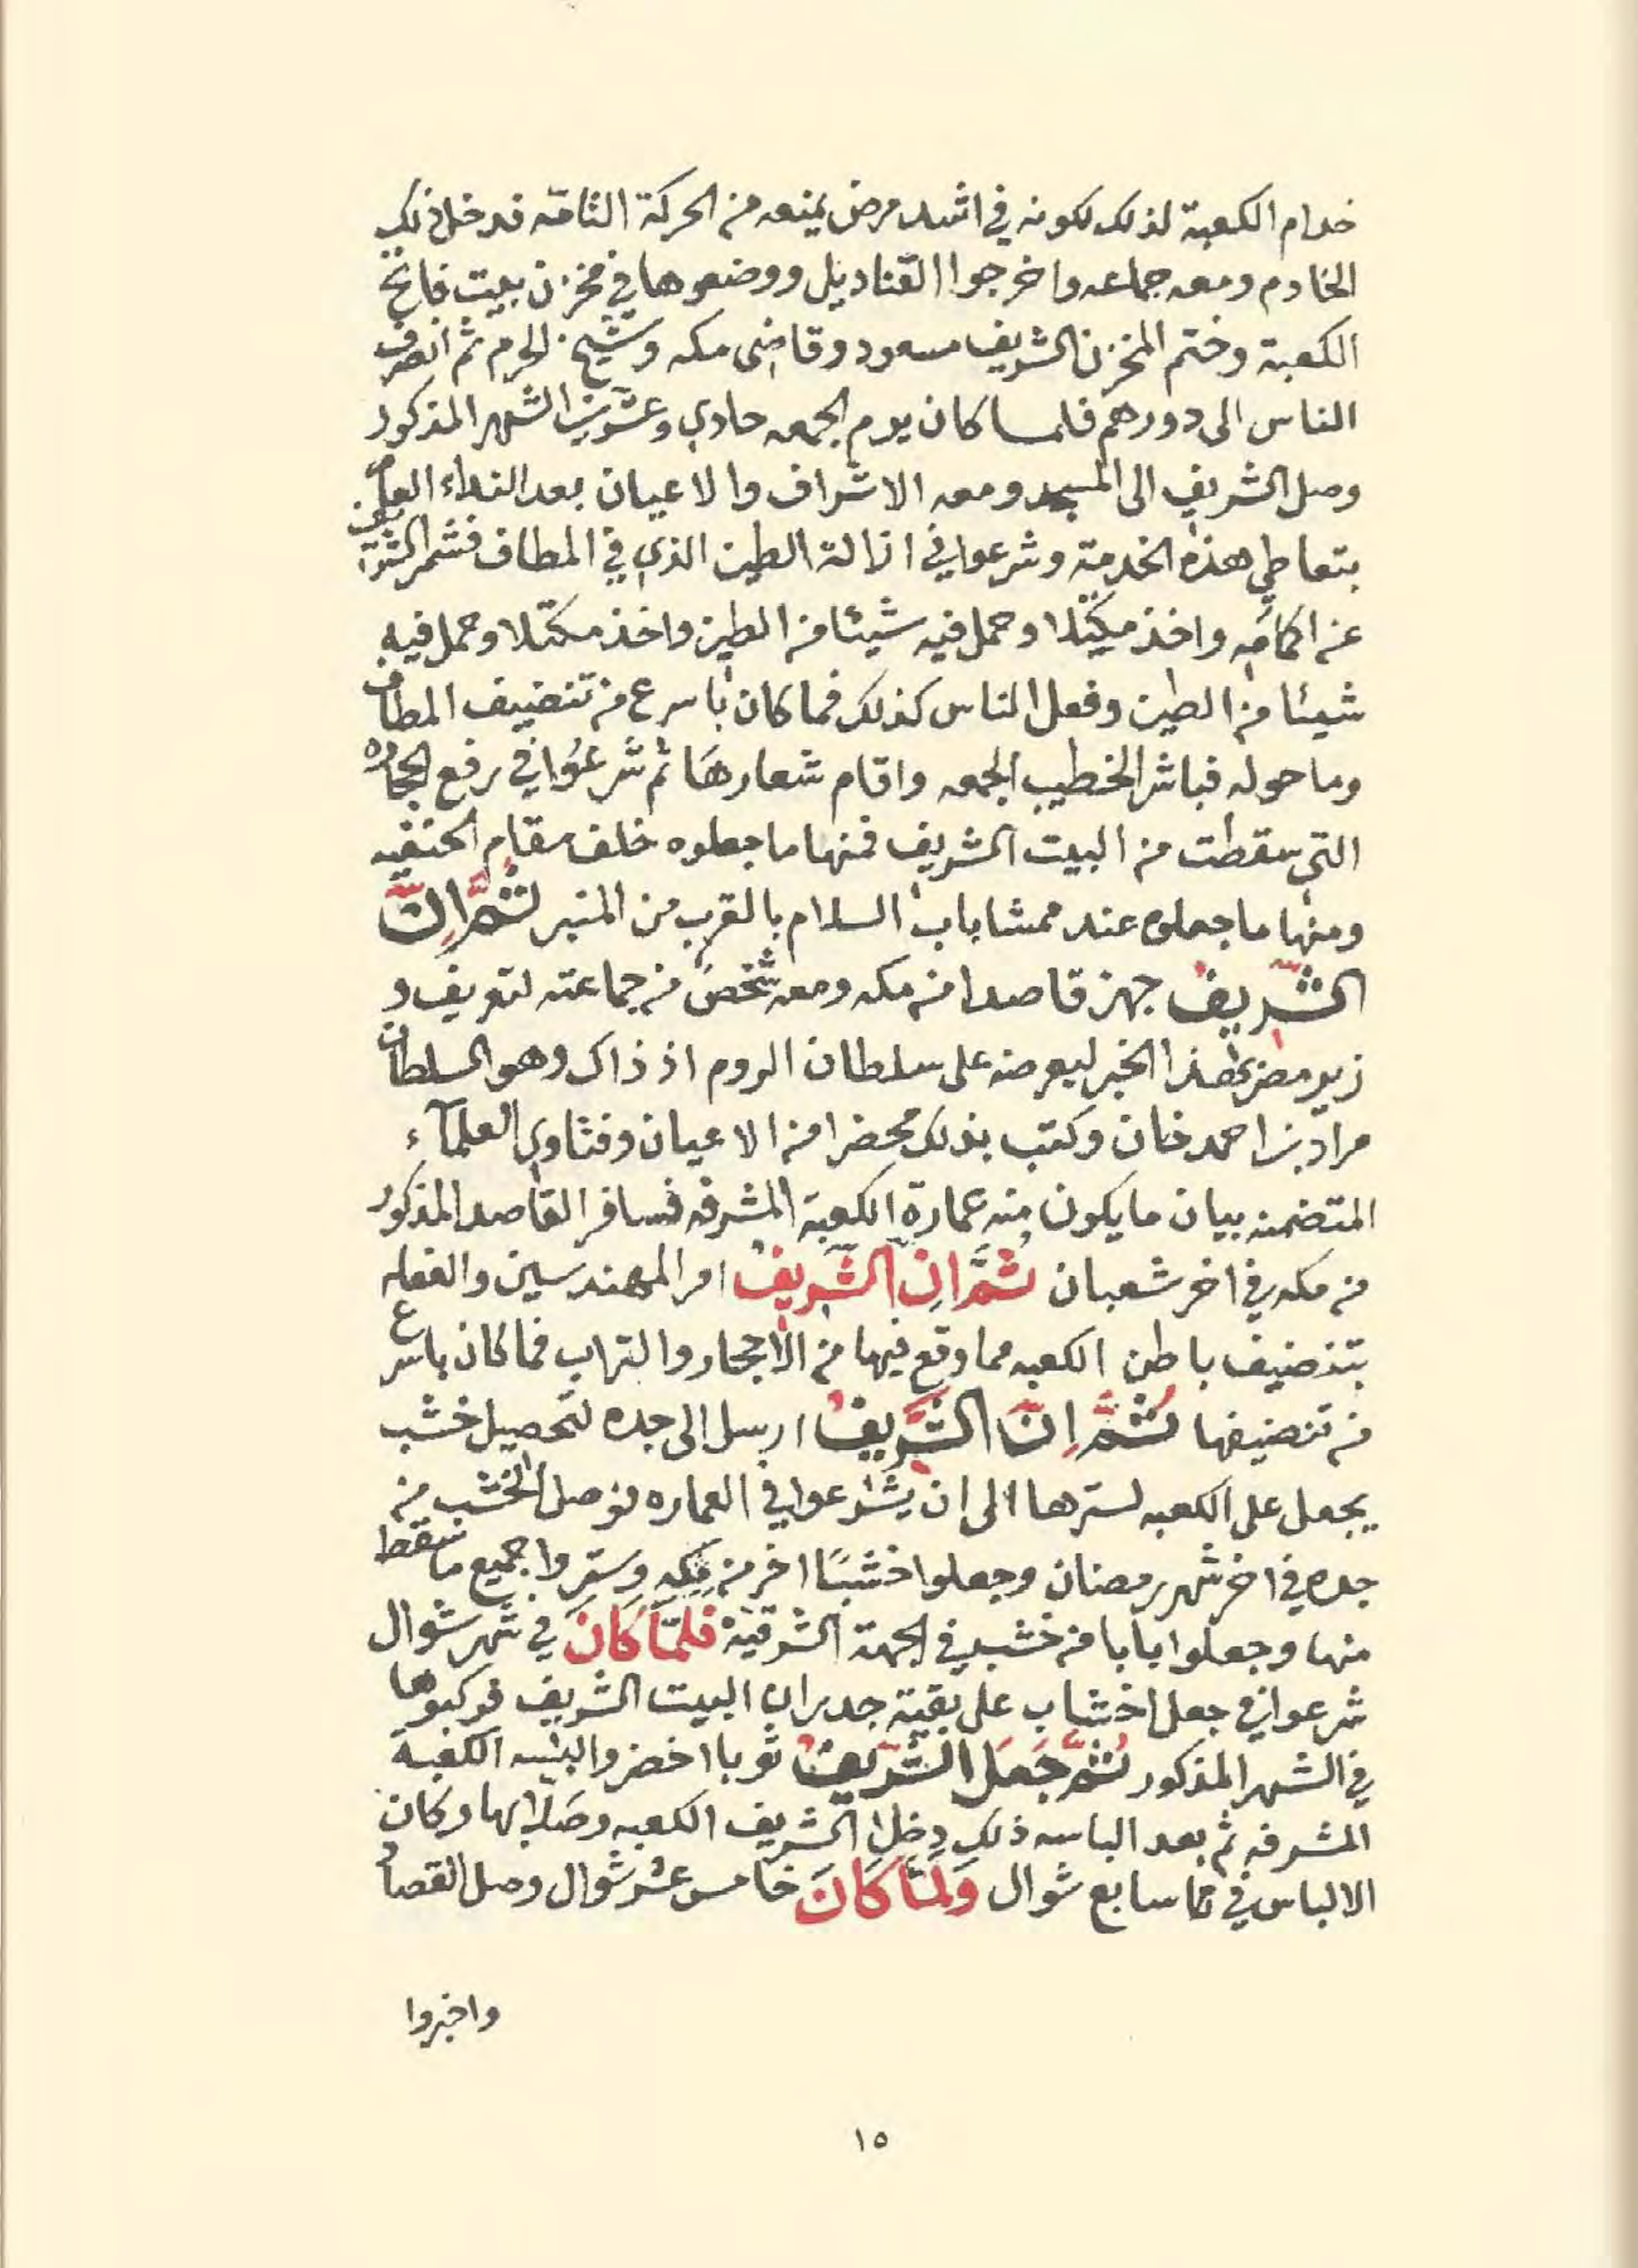 خدام الكعبة لذلك لكونه في اشد مرض يمنعه من الحركة التامه فدخل ذلك
الخادم ومعه جماعه واخرجوا القناديل ووضعوها في مخزن بيت فاتح
الكعبة وختم المخزن الشريف مسعود وقاضى مكه وشيخ الحرم ثم انصرف
الناس الى دورهم فلما كان يوم الجمعه حادي وعشرين الشهر المذكور
وصل الشريف الى المسجد ومعه الاشراف والاعيان بعد النداء العام
بتعاطي هذه الخدمة وشرعوا في ازالة الطين الذي في المطاف فشمر الشريف
عن اكمامه واخذ مكتلا وحمل فيه شيئا من الطين واخذ مكتلا وحمل فيه
شيئا من الطين وفعل الناس كذلك فما كان باسرع من تنضيف المطاف
وما حوله فباشر الخطيب الجمعه واقام شعارهَا ثم شرعُوا في رفع الحجاره
التي سقطت من البيت الشريف فمنها ما جعلوه خلف مقام الحنفيه
ومنها ما جعلوه عند ممشا باب السلام بالقرب من المنبر ثُمَّ اِنَّ
الشَّريفُ جهز قاصدا من مكه ومعه شخص من جماعته لتعريف و
زير مصر بهذا الخبر ليعرضه على سلطان الروم اذ ذاك وهو السلطان
مراد بن احمد خان وكتب بذلك محضرا من الاعيان وفتاوى العلمآء
المتضمنه بيان ما يكون منه عمارة الكعبة المشرفه فسافر القاصد المذكور
من مكه في اخر شعبان ثُمَّ اِنَّ الشَّريفُ امر المهندسين والفعله
بتنضيف باطن الكعبه مما وقع فيها من الاحجار والتراب فما كان باسرع
من تنضيفها ثُمَّ اِنَّ الشَّريفُ ارسل الى جده لتحصيل خشب
يجعل على الكعبه لسترها الى ان يشرعوا في العماره فوصل الخشب من
جده في اخر شهر رمضان وجعلوا خشبًا اخر من مكه وستروا جميع ما سقط
منها وجعلوا بابا من خشب في الجهة الشرقية فَلمَّا كَانَ في شهر شوال
شرعوا في جعل اخشاب على بقية جدران البيت الشريف فركبوها
في الشهر المذكور ثُمَّ جَعَلَ الشَّريفُ ثوبا اخضر والبسه الكعبة
المشرفه ثم بعد الباسه ذلك دخل الشريف الكعبه وصَلّا بها وكان
الالباس في سابع شوال وَلمَّا كَانَ خامس عشر شوال وصل القصاد
واخبروا
١٥